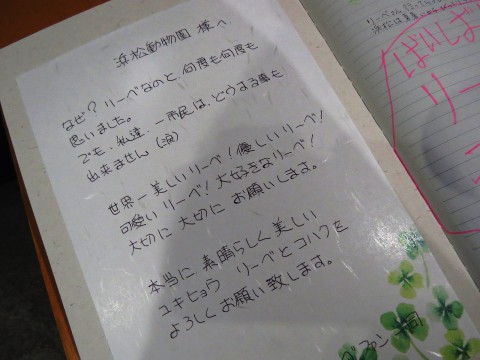 浜松動物園 様へ
なぜ？リーベなのと、何度も何度も
思いました。
でも、私達、一市民は、どうする事も
出来ません（涙）
世界一美しいリーベ！優しいリーベ！
可愛いリーベ！大好きなリーベ！
大切に大切にお願いします。
本当に素晴らしく美しい
ユキヒョウ リーベとコハクを
よろしくお願い致します。
ファン一同
ばいばい
リー